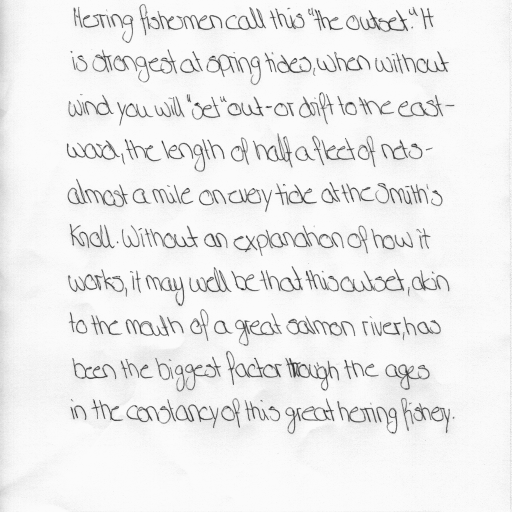 Herring fishermen call this "the outset." It
is strongest at spring tides, when without
wind you will "set" out - or drift to the east-
ward, the length of half a fleet of nets -
almost a mile on every tide at the Smith's
Knoll. Without an explanation of how it
works, it may well be that this outset, akin
to the mouth of a great salmon river, has
been the biggest factor through the ages
in the constancy of this great herring fishery.